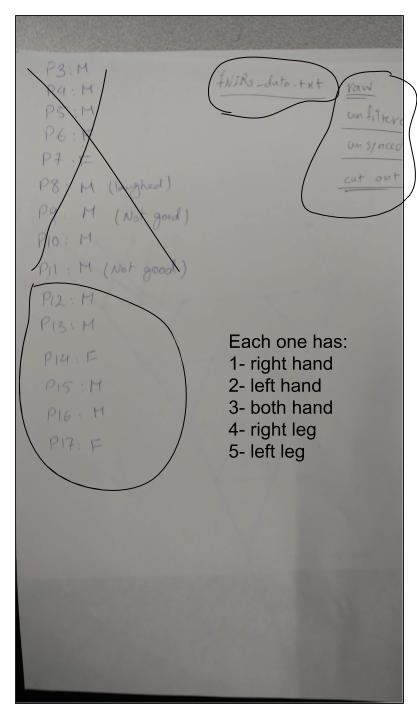 P3: M
P4: M
P5: M
P6: F
P7: F
P8: M (laughed)
P9: M (Not good)
P10: M
P11: M (Not good)
P12: M
P13: M
P14: F
P15: M
P16: M
P17: F
fNIRs_data.txt
raw
unfiltere
unsynced
cut out
Each one has:
1- right hand
2- left hand
3- both hand
4- right leg
5- left leg